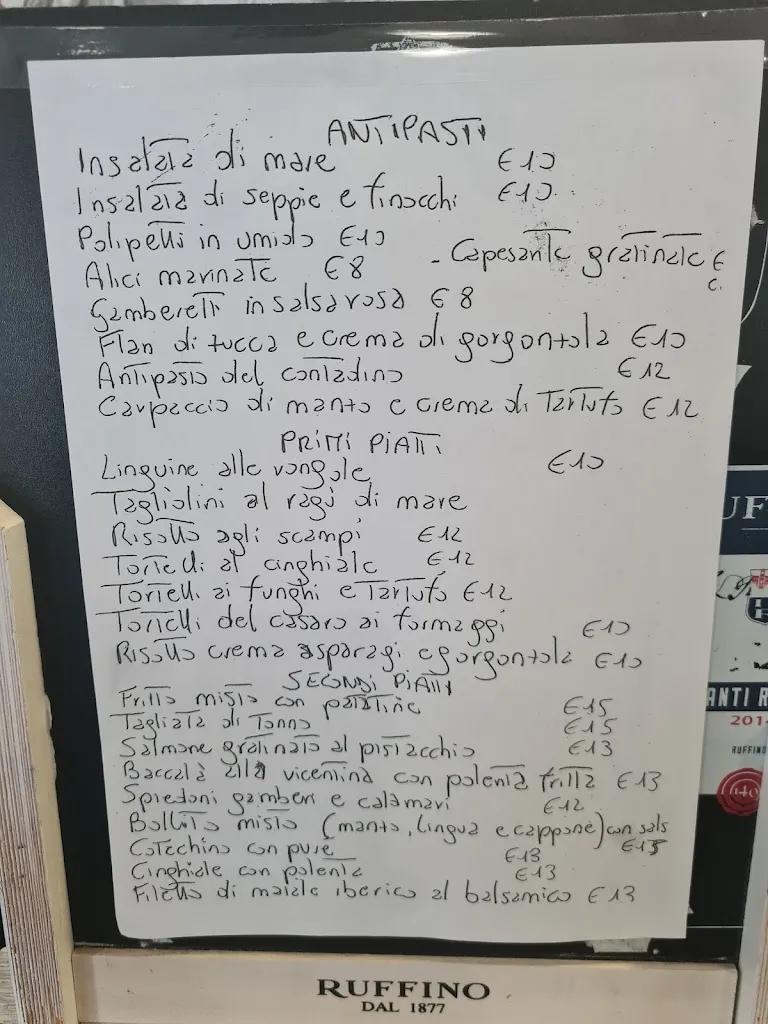 ANTIPASTI
Insalata di mare €10
Insalata di seppie e finocchi €10
Polipetti in umido €10
- Capesante gratinate €
Alici marinate €8
Gamberetti in salsa rosa €8
Flan di zucca e crema di gorgonzola €10
Antipasto del contadino €12
Carpaccio di manzo e crema di Tartufo €12
PRIMI PIATTI
Linguine alle vongole €10
Tagliolini al ragù di mare
Risotto agli scampi €12
Tortelli al cinghiale €12
Tortelli ai funghi e Tartufo €12
Tortelli del casaro ai formaggi €10
Risotto crema asparagi e gorgonzola €10
SECONDI PIATTI
Fritto misto con patatine €15
Tagliata di Tonno €15
Salmone gratinato al pistacchio €13
Baccalà alla vicentina con polenta fritta €13
Spiedoni gamberi e calamari €12
Bollito misto (manzo, lingua e cappone) con sals €15
Cotechino con purè €13
Cinghiale con polenta €13
Filetto di maiale iberico al balsamico €13
UF
ANTI R
201
RUFFINO
140
RUFFINO
DAL 1877